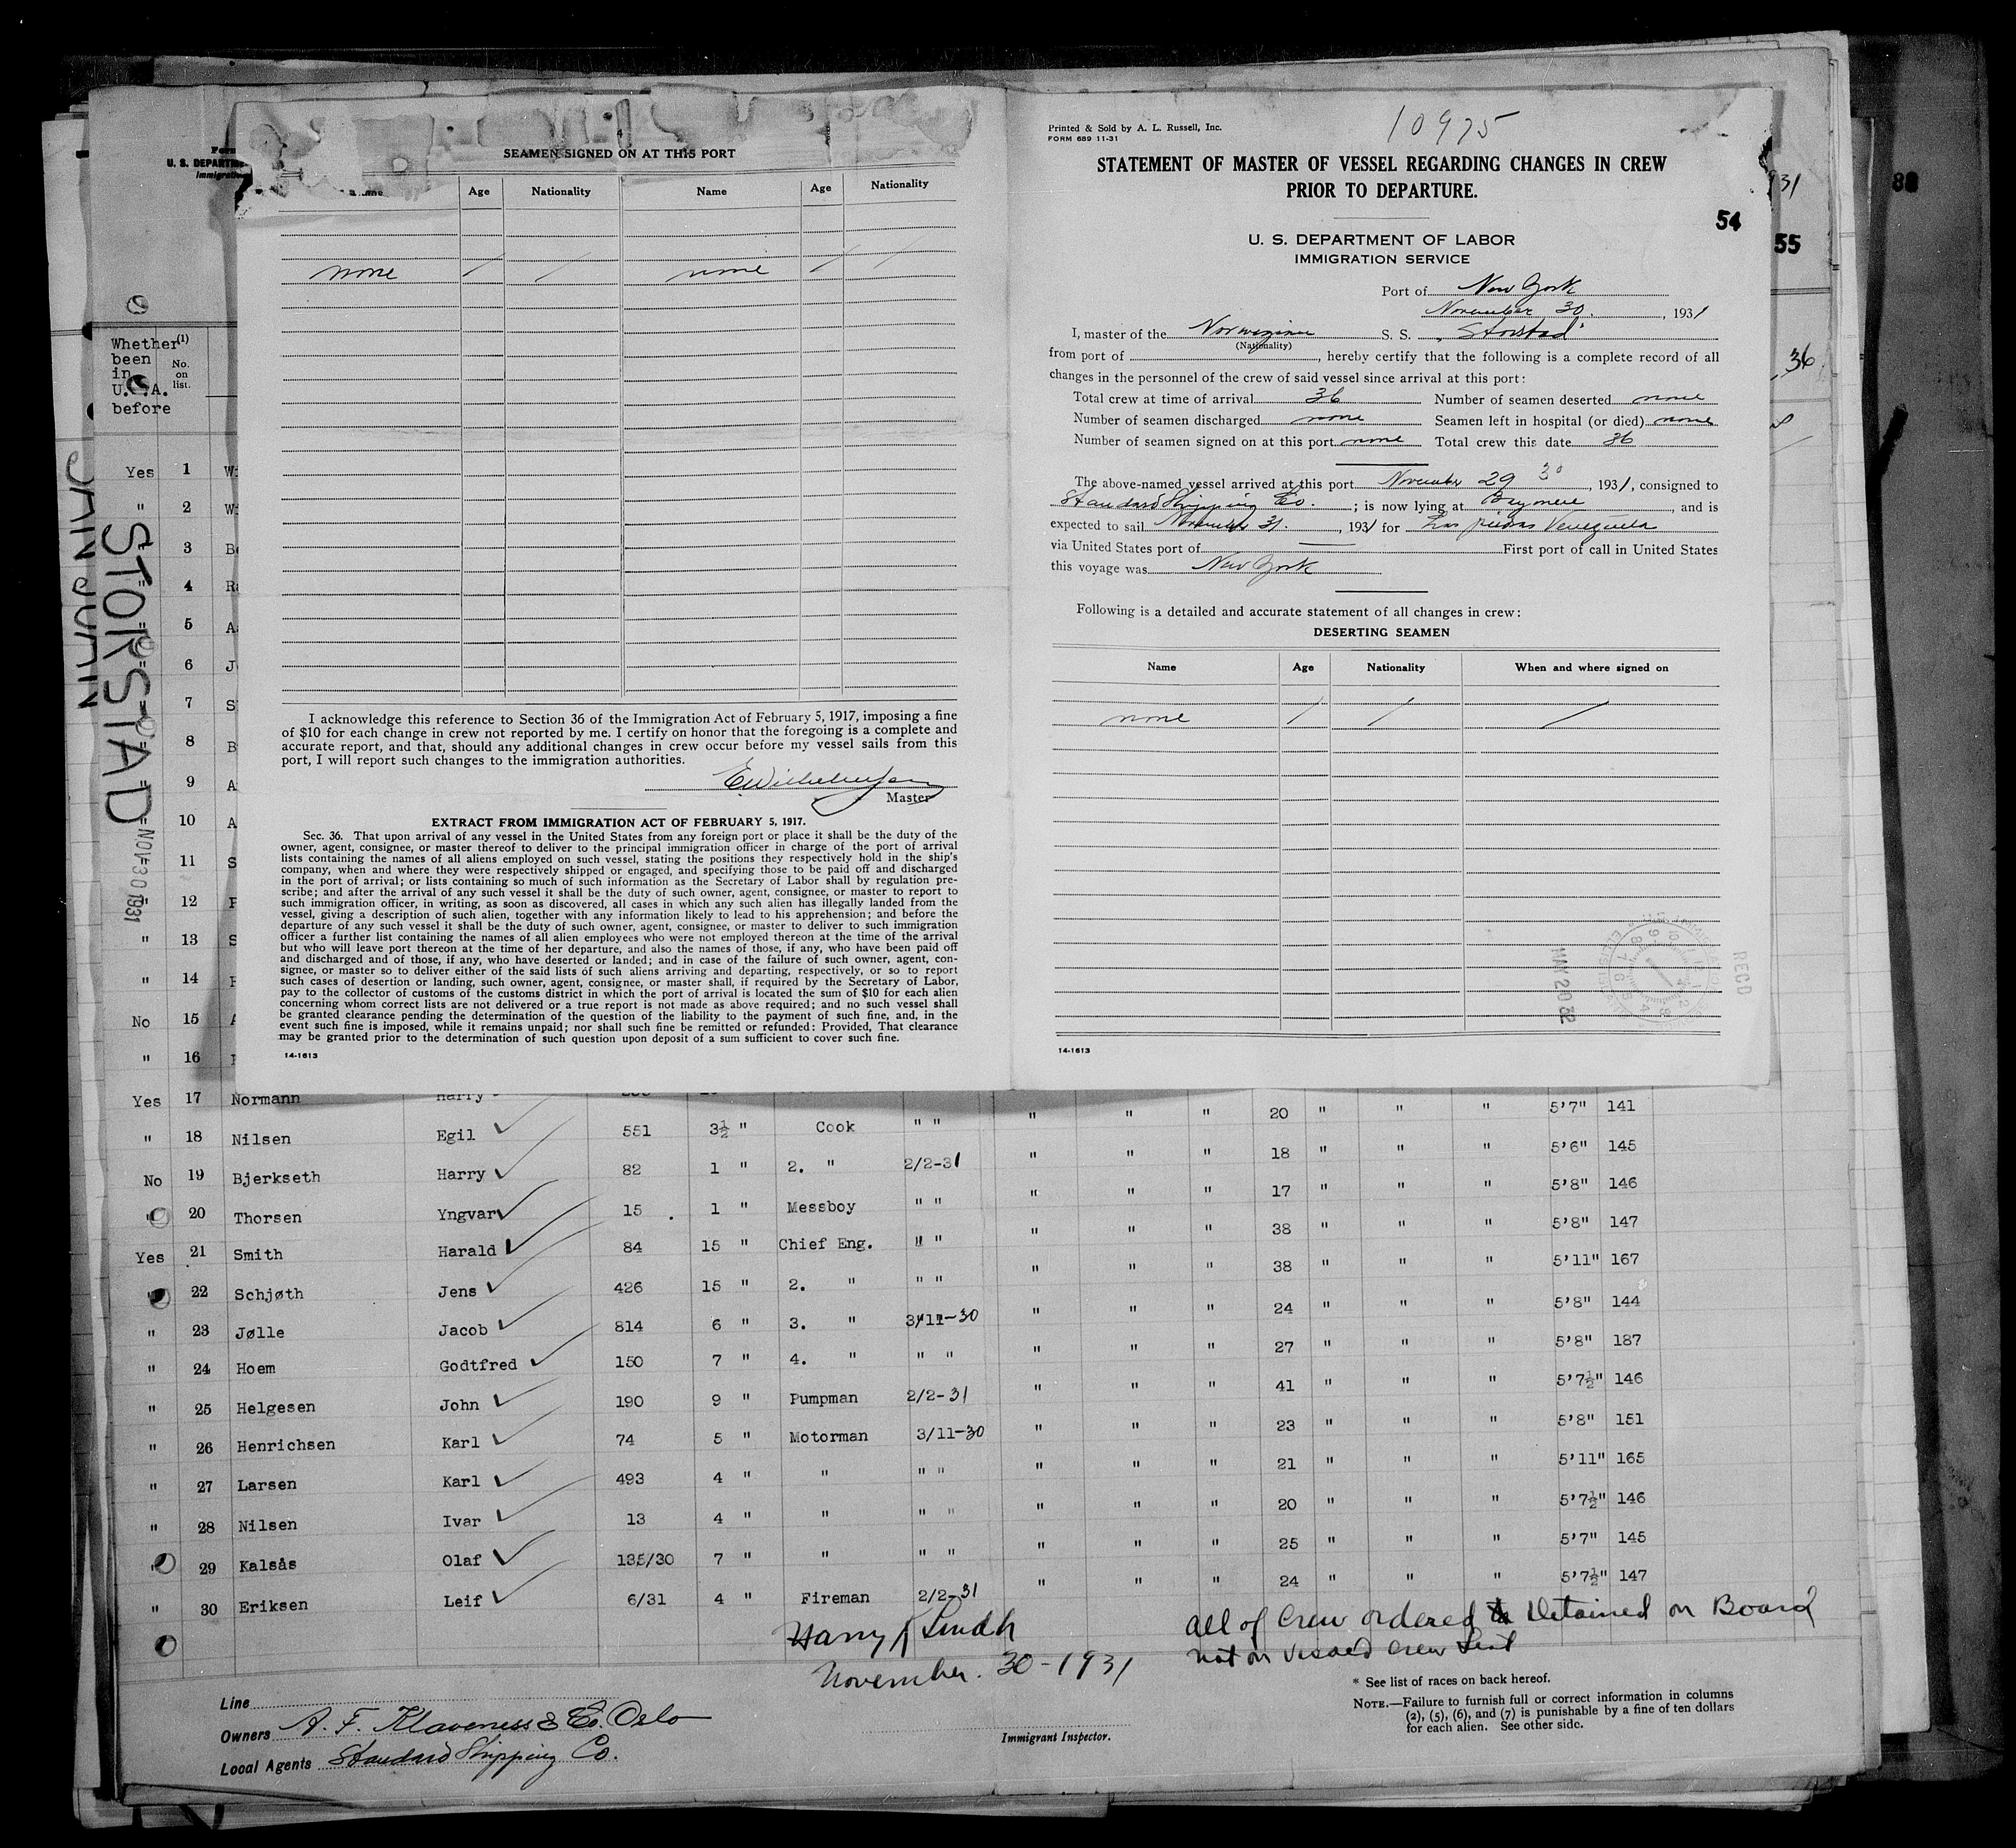 SEAMEN SIGNED ON AT THIS PORT
Age Nationality Name Age Nationality
none none
I acknowledge this reference to Section 36 of the Immigration Act of February 5, 1917, imposing a fine
of $10 for each change in crew not reported by me. I certify on honor that the foregoing is a complete and
accurate report, and that, should any additional changes in crew occur before my vessel sails from this
port, I will report such changes to the immigration authorities.
Master
EXTRACT FROM IMMIGRATION ACT OF FEBRUARY 5, 1917.
Sec. 36. That upon arrival of any vessel in the United States from any foreign port or place it shall be the duty of the
owner, agent, consignee, or master thereof to deliver to the principal immigration officer in charge of the port of arrival
lists containing the names of all aliens employed on such vessel, stating the positions they respectively hold in the ship's
company, when and where they were respectively shipped or engaged, and specifying those to be paid off and discharged
in the port of arrival; or lists containing so much of such information as the Secretary of Labor shall by regulation pre-
scribe; and after the arrival of any such vessel it shall be the duty of such owner, agent, consignee, or master to report to
such immigration officer, in writing, as soon as discovered, all cases in which any such alien has illegally landed from the
vessel, giving a description of such alien, together with any information likely to lead to his apprehension; and before the
departure of any such vessel it shall be the duty of such owner, agent, consignee, or master to deliver to such immigration
officer a further list containing the names of all alien employees who were not employed thereon at the time of the arrival
but who will leave port thereon at the time of her departure, and also the names of those, if any, who have been paid off
and discharged and of those, if any, who have deserted or landed; and in case of the failure of such owner, agent, con-
signee, or master so to deliver either of the said lists of such aliens arriving and departing, respectively, or so to report
such cases of desertion or landing, such owner, agent, consignee, or master shall, if required by the Secretary of Labor,
pay to the collector of customs of the customs district in which the port of arrival is located the sum of $10 for each alien
concerning whom correct lists are not delivered or a true report is not made as above required; and no such vessel shall
be granted clearance pending the determination of the question of the liability to the payment of such fine, and, in the
event such fine is imposed, while it remains unpaid; nor shall such fine be remitted or refunded: Provided, That clearance
may be granted prior to the determination of such question upon deposit of a sum sufficient to cover such fine.
14-1613
Printed & Sold by A. L. Russell, Inc.
FORM 689 11-31
10975
STATEMENT OF MASTER OF VESSEL REGARDING CHANGES IN CREW
PRIOR TO DEPARTURE.
54
U. S. DEPARTMENT OF LABOR
IMMIGRATION SERVICE
Port of New York
November 30, 1931
I, master of the Norwegian S. S. "Storstad"
(Nationality)
from port of , hereby certify that the following is a complete record of all
changes in the personnel of the crew of said vessel since arrival at this port:
Total crew at time of arrival 36 Number of seamen deserted none
Number of seamen discharged none Seamen left in hospital (or died) none
Number of seamen signed on at this port none Total crew this date 36
The above-named vessel arrived at this port November 29 30, 1931, consigned to
Standard Shipping Co. ; is now lying at , and is
expected to sail November 31, 1931 for Las Piedras Venezuela
via United States port of First port of call in United States
this voyage was New York
Following is a detailed and accurate statement of all changes in crew:
DESERTING SEAMEN
Name Age Nationality When and where signed on
none
RECD
MAY 20 32
14-1613
931
55
88
36
U. S. DEPARTME
Immigratio
Whether been in U.S.A. before
(1) No. on list.
STORSTAD
NOV 30 1931
Yes 1 Wi
" 2 Wi
" 3 Be
" 4 Ra
" 5 As
" 6 J
" 7 S
" 8 B
" 9 A
" 10 A
" 11 S
" 12
" 13 S
" 14
No 15 A
" 16
Yes 17 Normann Harry " " " 20 " " " 5'7" 141
" 18 Nilsen Egil 551 3½ " Cook " " " " " 18 " " " 5'6" 145
No 19 Bjerkseth Harry 82 1 " 2. " 2/2-31 " " " 17 " " " 5'8" 146
" 20 Thorsen Yngvar 15 1 " Messboy " " " " " 38 " " " 5'8" 147
Yes 21 Smith Harald 84 15 " Chief Eng. " " " " " 38 " " " 5'11" 167
" 22 Schjøth Jens 426 15 " 2. " " " " " " 24 " " " 5'8" 144
" 23 Jølle Jacob 814 6 " 3. " 3/11-30 " " " 27 " " " 5'8" 187
" 24 Hoem Godtfred 150 7 " 4. " " " " " " 41 " " " 5'7½" 146
" 25 Helgesen John 190 9 " Pumpman 2/2-31 " " " 23 " " " 5'8" 151
" 26 Henrichsen Karl 74 5 " Motorman 3/11-30 " " " 21 " " " 5'11" 165
" 27 Larsen Karl 493 4 " " " " " " " 20 " " " 5'7½" 146
" 28 Nilsen Ivar 13 4 " " " " " " " 25 " " " 5'7" 145
" 29 Kalsås Olaf 135/30 7 " " " " " " " 24 " " " 5'7½" 147
" 30 Eriksen Leif 6/31 4 " Fireman 2/2-31
Harry Lindh
November. 30-1931
all of Crew ordered Detained on Board
not on visaed crew List
* See list of races on back hereof.
NOTE.—Failure to furnish full or correct information in columns
(2), (5), (6), and (7) is punishable by a fine of ten dollars
for each alien. See other side.
Line
Owners A. F. Klaveness & Co. Oslo
Local Agents Standard Shipping Co.
Immigrant Inspector.